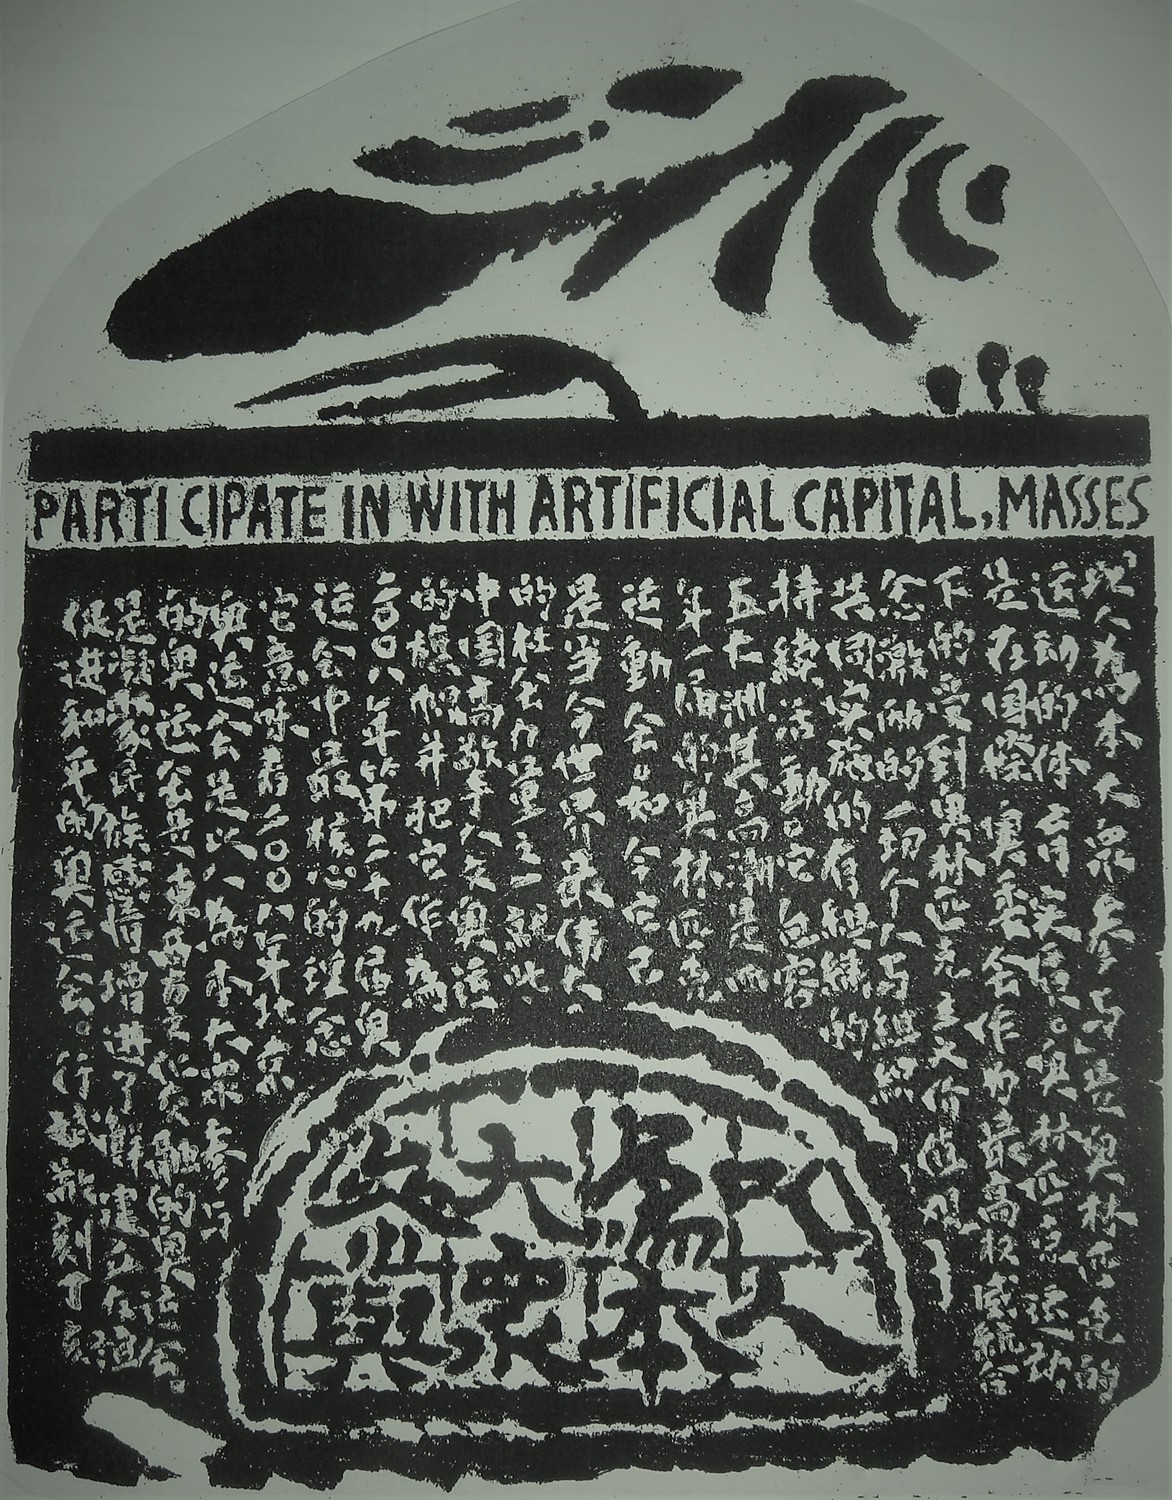 PARTICIPATE IN WITH ARTIFICIAL CAPITAL, MASSES
以人为本大众参与是奥林匹克的
运动的体育实质。奥林匹克运动
在国际奥委会作为最高权威统合
下的受到奥林匹克主义价值观
念激励的一切个人与组织
共同实施的有组织的
持续活動。它包容
五大洲其高潮是四
年一届的奥林匹克
运動会。如今它已
是当今世界最伟大
的社会力量之一就此
中国高人文奥运
的旗帜并把它作為
二〇〇八年第二十九届奥
运会中最核心的理念
它意味着二〇〇八年北京
奥运会是以人為本大众参与
的奥运会是東西方文化交融的奥运会
是凝聚民族感情增进了
促进和平的奥运会。行敬刻于
以人
為本
大衆
參與